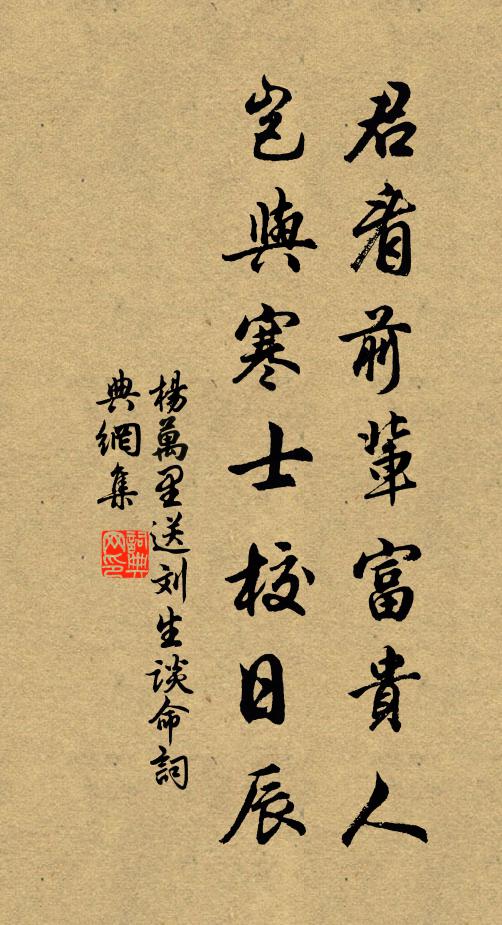 君看前輩富貴人
豈與寒士校日辰
楊萬里送刘生談命詞
典網集
詞典
网印